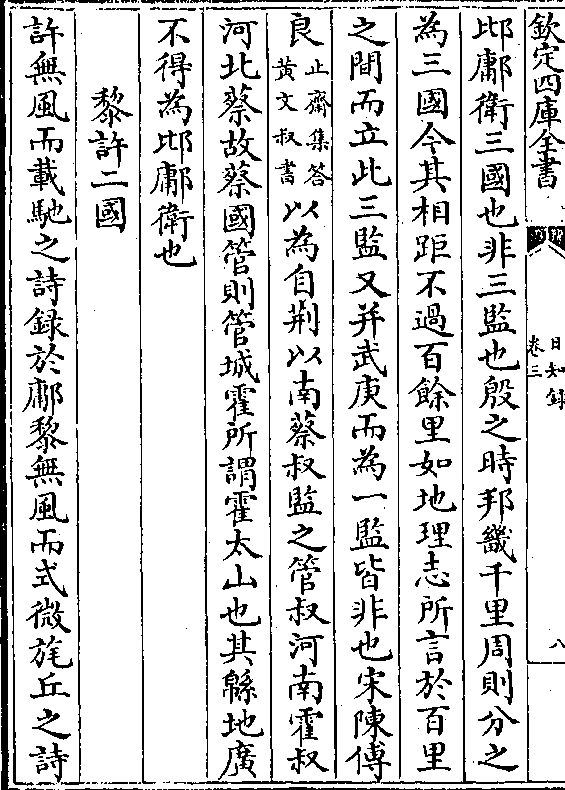 欽定四庫全書
日知錄
卷三
八
邶鄘衛三國也非三監也殷之時邦畿千里周則分之
為三國今其相距不過百餘里如地理志所言於百里
之間而立此三監又并武庚而為一監皆非也宋陳傅
良止齋集答黃文叔書以為自荆以南蔡叔監之管叔河南霍叔
河北蔡故蔡國管則管城霍所謂霍太山也其緜地廣
不得為邶鄘衛也
黎許二國
許無風而載馳之詩録於鄘黎無風而式微旄丘之詩